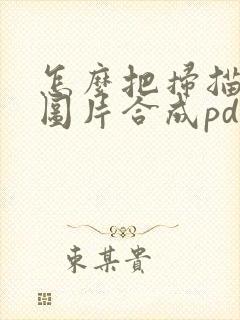 怎麼把掃描
圖片合成pd
東某貴